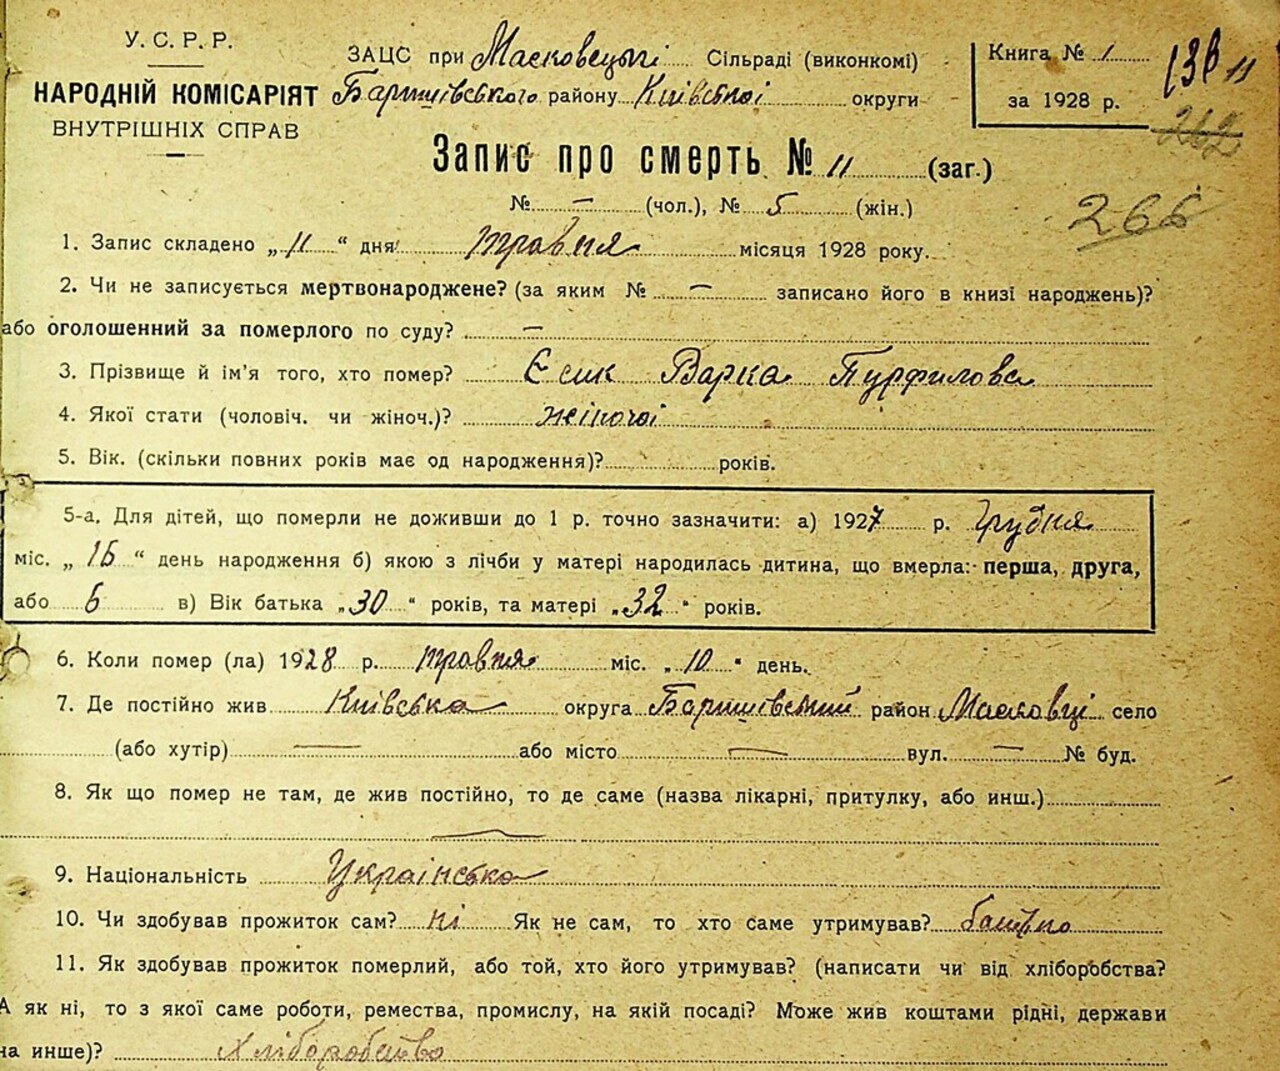 У. С. Р. Р.
НАРОДНІЙ КОМІСАРІЯТ
ВНУТРІШНІХ СПРАВ
ЗАЦС при Масковецькі Сільраді (виконкомі)
Баришівського району Київської округи
Книга № 1
за 1928 р.
138 11
262
266
Запис про смерть № 11 (заг.)
№ — (чол.), № 5 (жін.)
1. Запис складено „ 11 “ дня травня місяця 1928 року.
2. Чи не записується мертвонароджене? (за яким № — записано його в книзі народжень)?
або оголошенний за померлого по суду? —
3. Прізвище й ім'я того, хто помер? Єсик Варка Пурфилова
4. Якої стати (чоловіч. чи жіноч.)? жіночої
5. Вік. (скільки повних років має од народження)? років.
5-а. Для дітей, що померли не доживши до 1 р. точно зазначити: а) 1927 р. Грудня
міс. „ 15 “ день народження б) якою з лічби у матері народилась дитина, що вмерла: перша, друга,
або 6 в) Вік батька „30“ років, та матері „32“ років.
6. Коли помер (ла) 1928 р. травня міс. „ 10 “ день.
7. Де постійно жив Київська округа Баришівський район Масковці село
(або хутір) — або місто — вул. — № буд.
8. Як що помер не там, де жив постійно, то де саме (назва лікарні, притулку, або инш.)
—
9. Національність Українська
10. Чи здобував прожиток сам? ні Як не сам, то хто саме утримував? батько
11. Як здобував прожиток померлий, або той, хто його утримував? (написати чи від хліборобства?
А як ні, то з якої саме роботи, ремества, промислу, на якій посаді? Може жив коштами рідні, держави
на инше)? Хліборобство